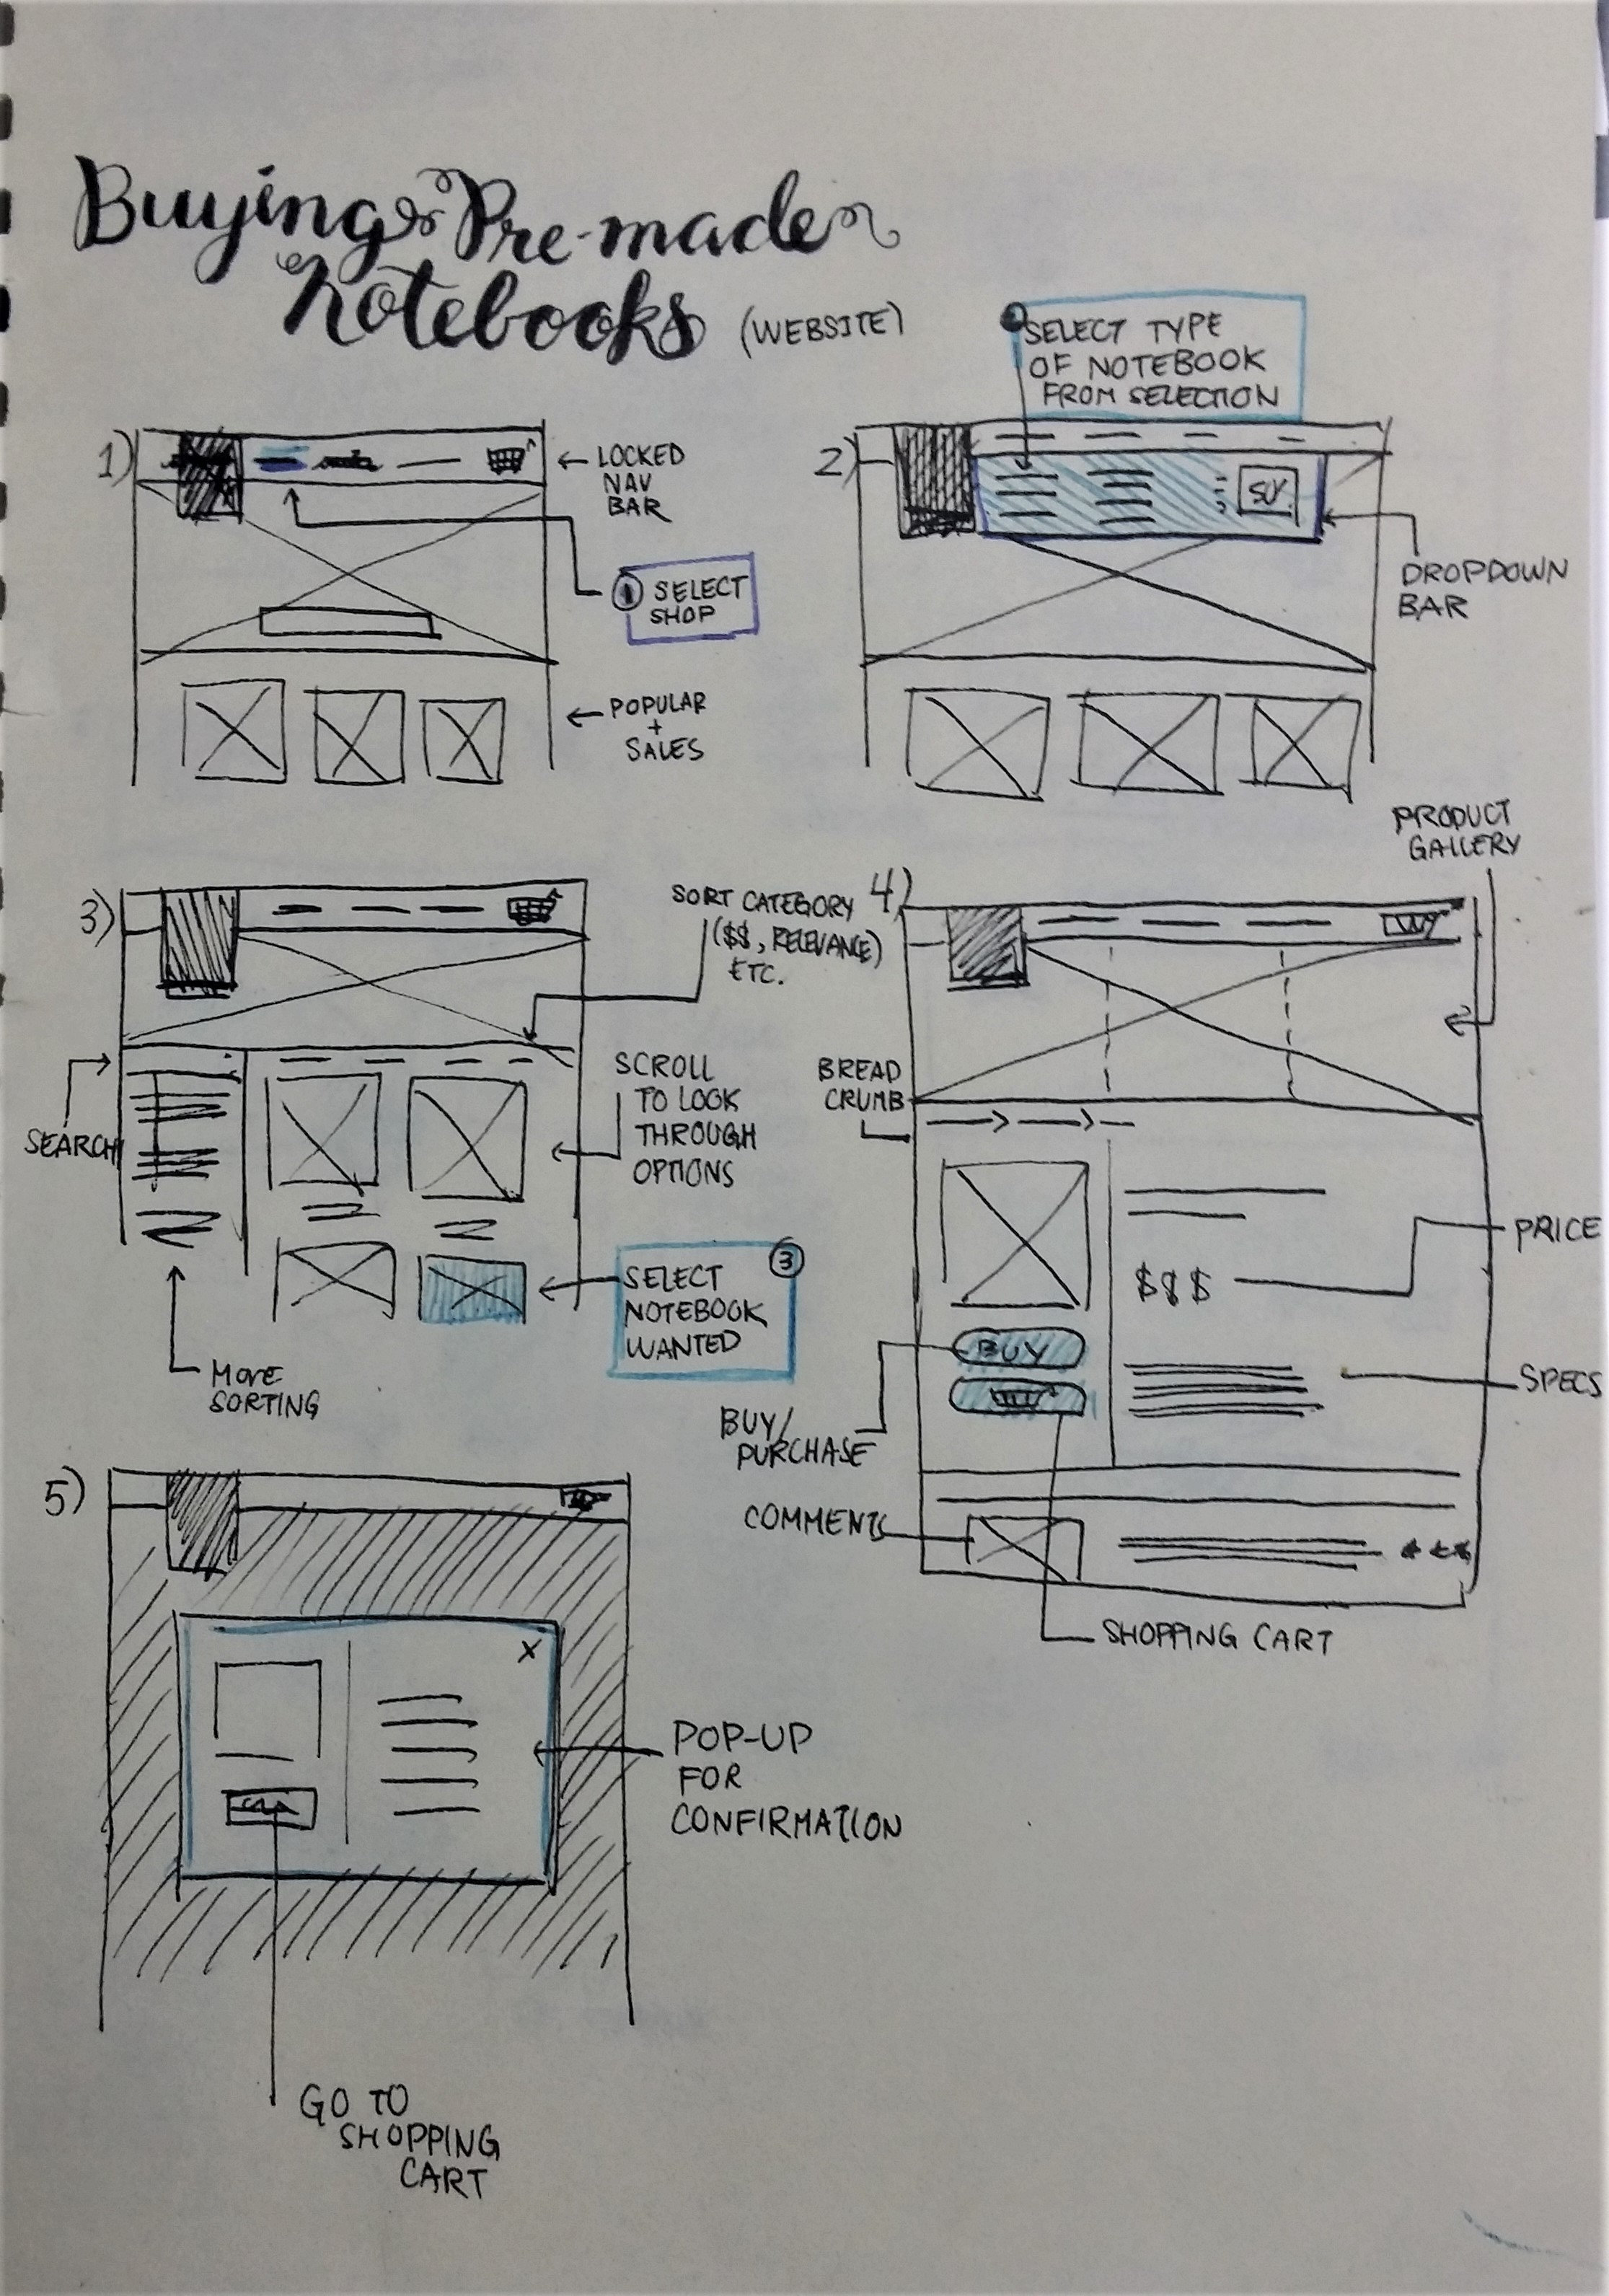 Buying Pre-made
Notebooks (WEBSITE)
1)
← LOCKED
NAV
BAR
1 SELECT
SHOP
← POPULAR
+
SALES
SELECT TYPE
OF NOTEBOOK
FROM SELECTION
2)
DROPDOWN
BAR
3)
SORT CATEGORY
($$, RELEVANCE)
ETC.
SEARCH
SCROLL
TO LOOK
THROUGH
OPTIONS
SELECT 3
NOTEBOOK
WANTED
SORTING
4)
PRODUCT
GALLERY
BREAD
CRUMB
PRICE
$$$
BUY
SPECS
BUY/
PURCHASE
COMMENTS
SHOPPING CART
5)
X
POP-UP
FOR
CONFIRMATION
GO TO
SHOPPING
CART